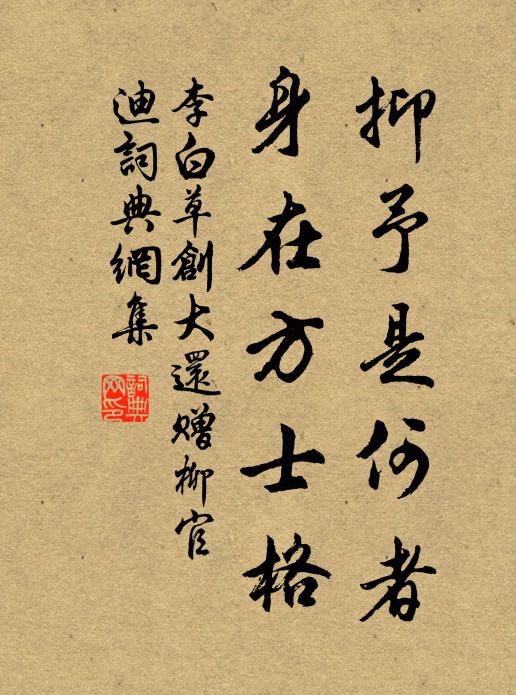 抑予是何者
身在方士格
李白草創大還贈柳官
迪詞典網集
詞典網印